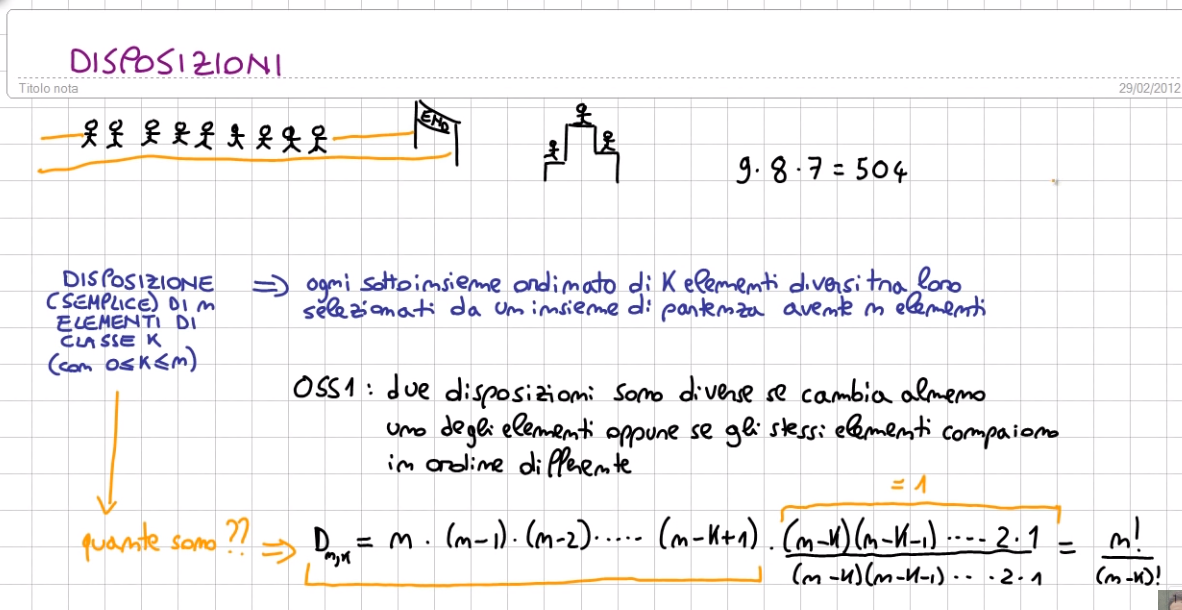 DISPOSIZIONI
Titolo nota
29/02/2012
END
9·8·7=504
DISPOSIZIONE
(SEMPLICE) DI n
ELEMENTI DI
CLASSE K
(con 0≤K≤n)
⇒ ogni sottoinsieme ordinato di K elementi diversi tra loro
selezionati da un insieme di partenza avente n elementi
OSS1: due disposizioni sono diverse se cambia almeno
uno degli elementi oppure se gli stessi elementi compaiono
in ordine differente
= 1
quante sono?? ⇒ D_{n,K} = n · (n-1)·(n-2)····· (n-K+1) · (n-K)(n-K-1)···· 2·1 = n!
(n-K)(n-K-1)·· ·2·1 (n-K)!